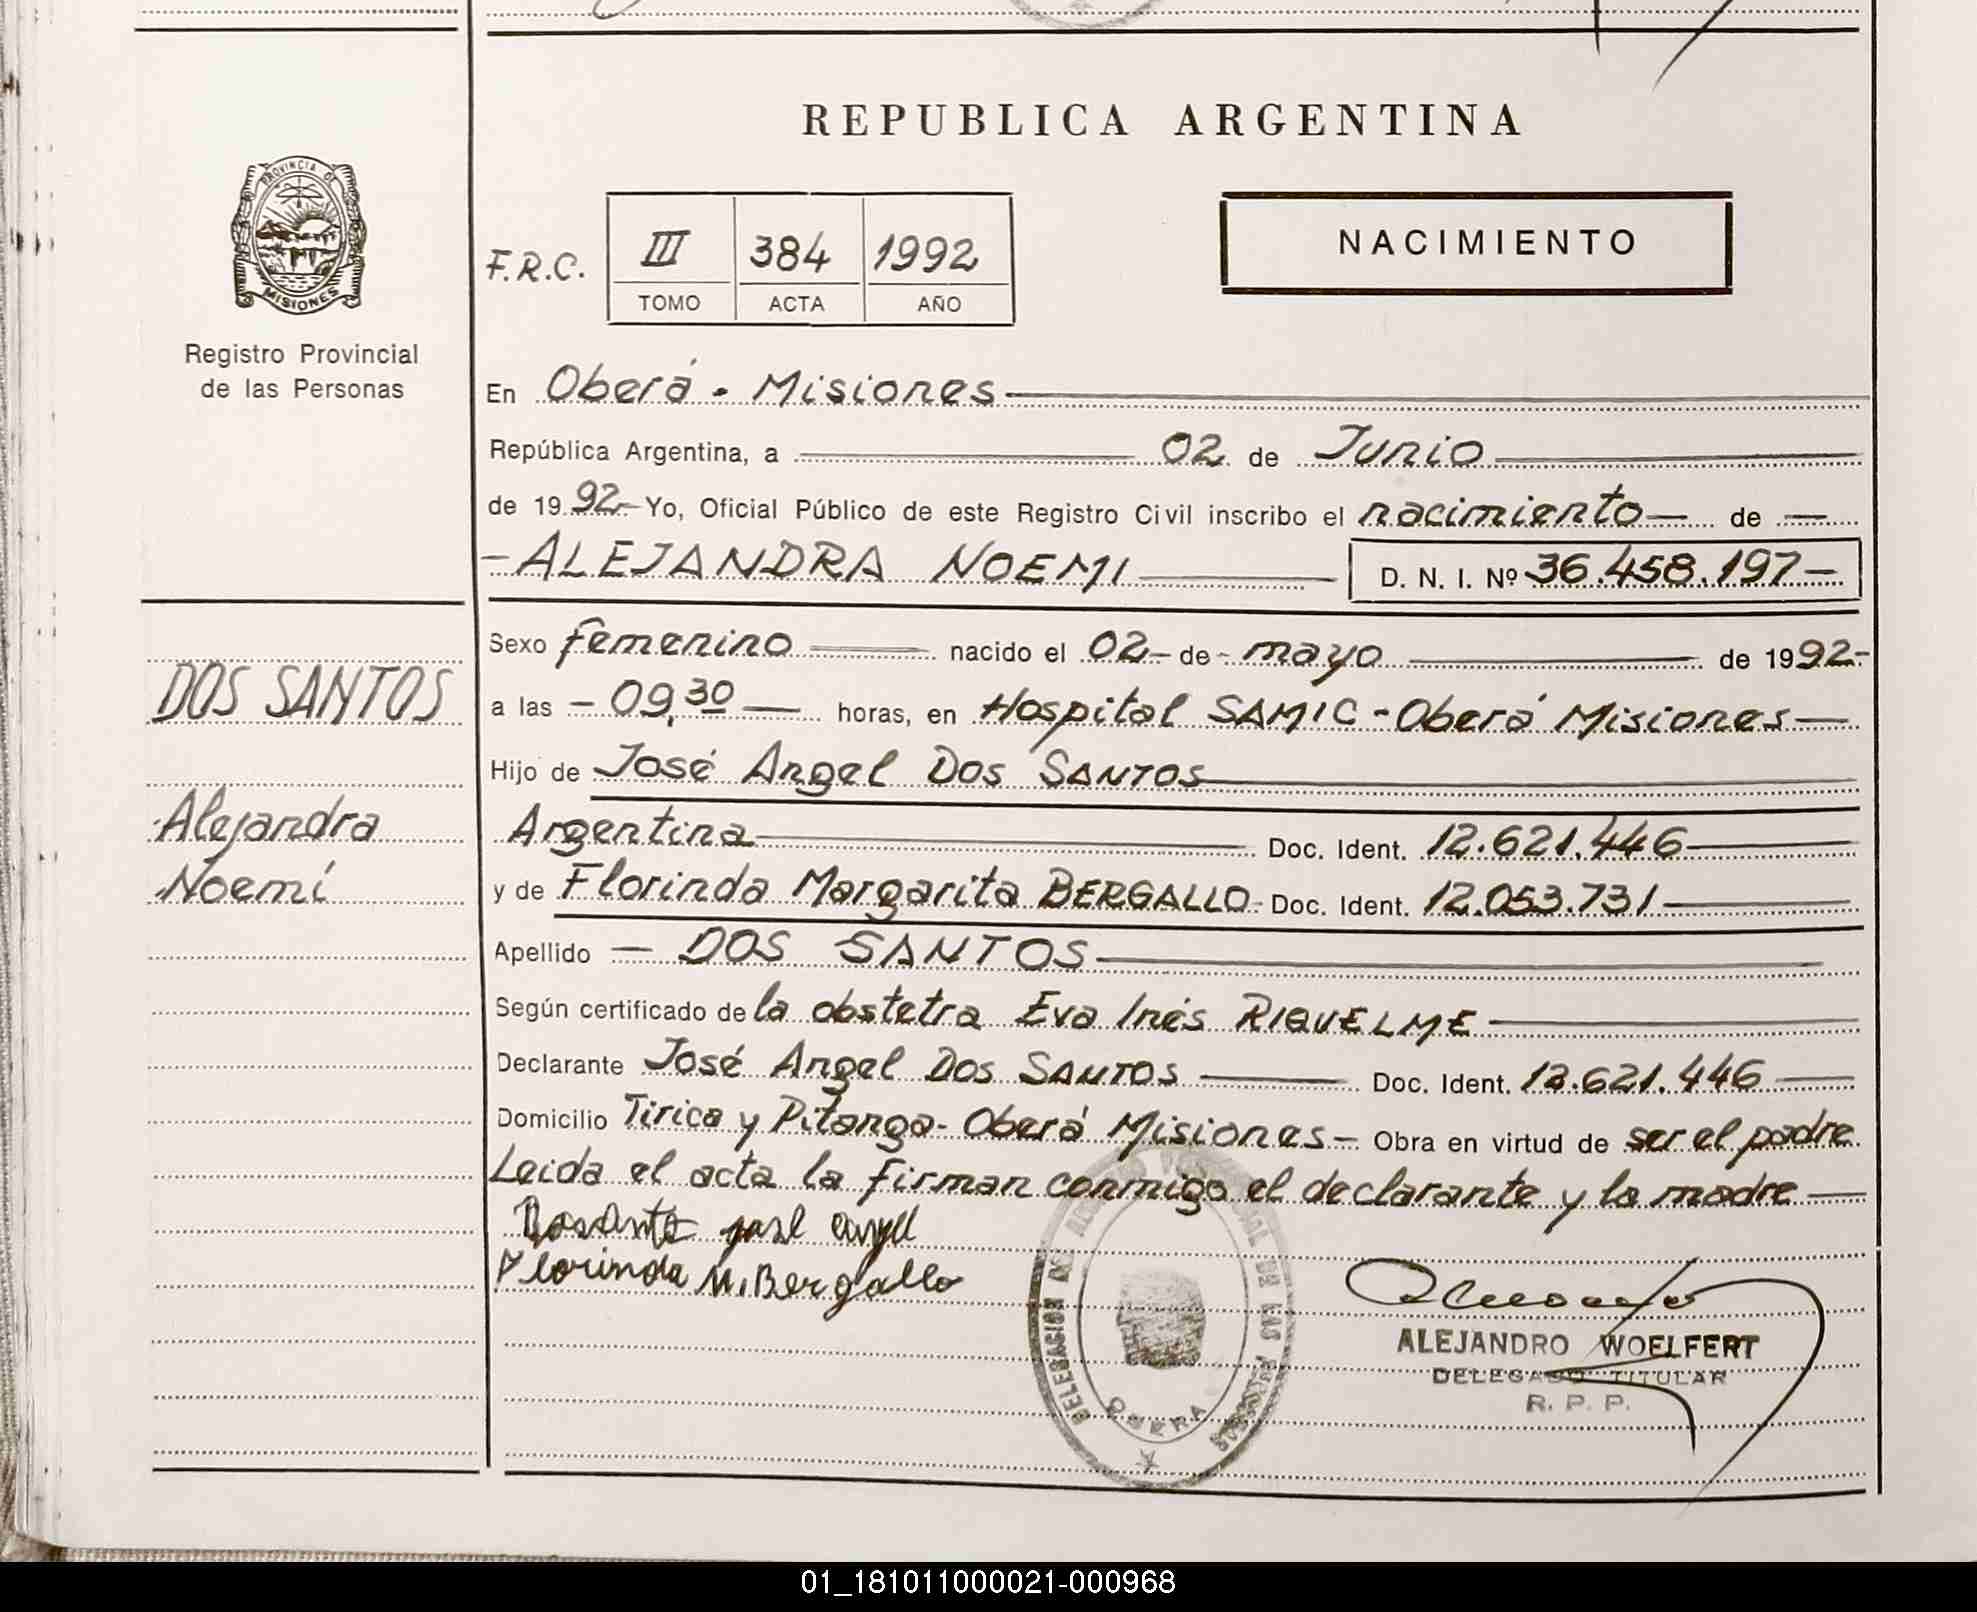 REPUBLICA ARGENTINA
PROVINCIA DE
MISIONES
Registro Provincial
de las Personas
F.R.C.
III 384 1992
TOMO ACTA AÑO
NACIMIENTO
En Oberá - Misiones
República Argentina, a 02 de Junio
de 1992 - Yo, Oficial Público de este Registro Civil inscribo el nacimiento — de —
- ALEJANDRA NOEMI — D. N. I. Nº 36.458.197 —
Sexo femenino — nacido el 02 - de - mayo — de 1992 -
a las - 09,30 — horas, en Hospital SAMIC - Oberá Misiones —
Hijo de José Angel Dos SANTOS
Argentina — Doc. Ident. 12.621.446 —
y de Florinda Margarita BERGALLO - Doc. Ident. 12.053.731 —
Apellido — DOS SANTOS —
Según certificado de la obstetra Eva Inés RIQUELME —
Declarante José Angel Dos SANTOS — Doc. Ident. 12.621.446 —
Domicilio Tirica y Pitanga - Oberá Misiones — Obra en virtud de ser el padre
Leida el acta la firman conmigo el declarante y la madre —
Florinda M. Bergallo
DOS SANTOS
Alejandra
Noemí
DELEGACION DEL REGISTRO PROVINCIAL DE LAS PERSONAS
OBERA
ALEJANDRO WOELFERT
DELEGADO TITULAR
R. P. P.
01_181011000021-000968